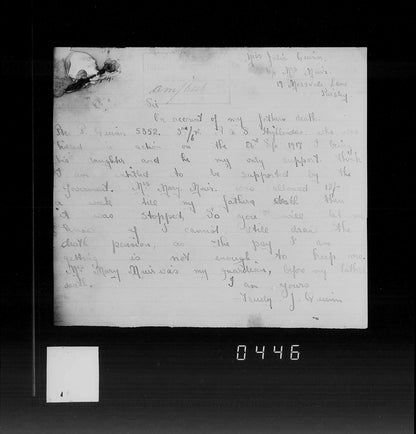 Miss Julia Quinn
Mrs Muir
17 Mossvale Lane
Paisley
Sir
On account of my fathers death
Pte P Quinn 5552. 2nd/6th A & S Highlanders, who was
killed in action on the 20th 1917 I being
his daughter and he my only support. Think
I am entitled to be supported by the
Government. Mrs Mary Muir was allowed 15/-
a week till my fathers death then
it was stopped, So you will let me
know if I cannot still draw the
death pension, as the pay I am
getting is not enough to keep me.
Mrs Mary Muir was my guardian, before my fathers
death.
I am yours
Truely J. Quinn
0446